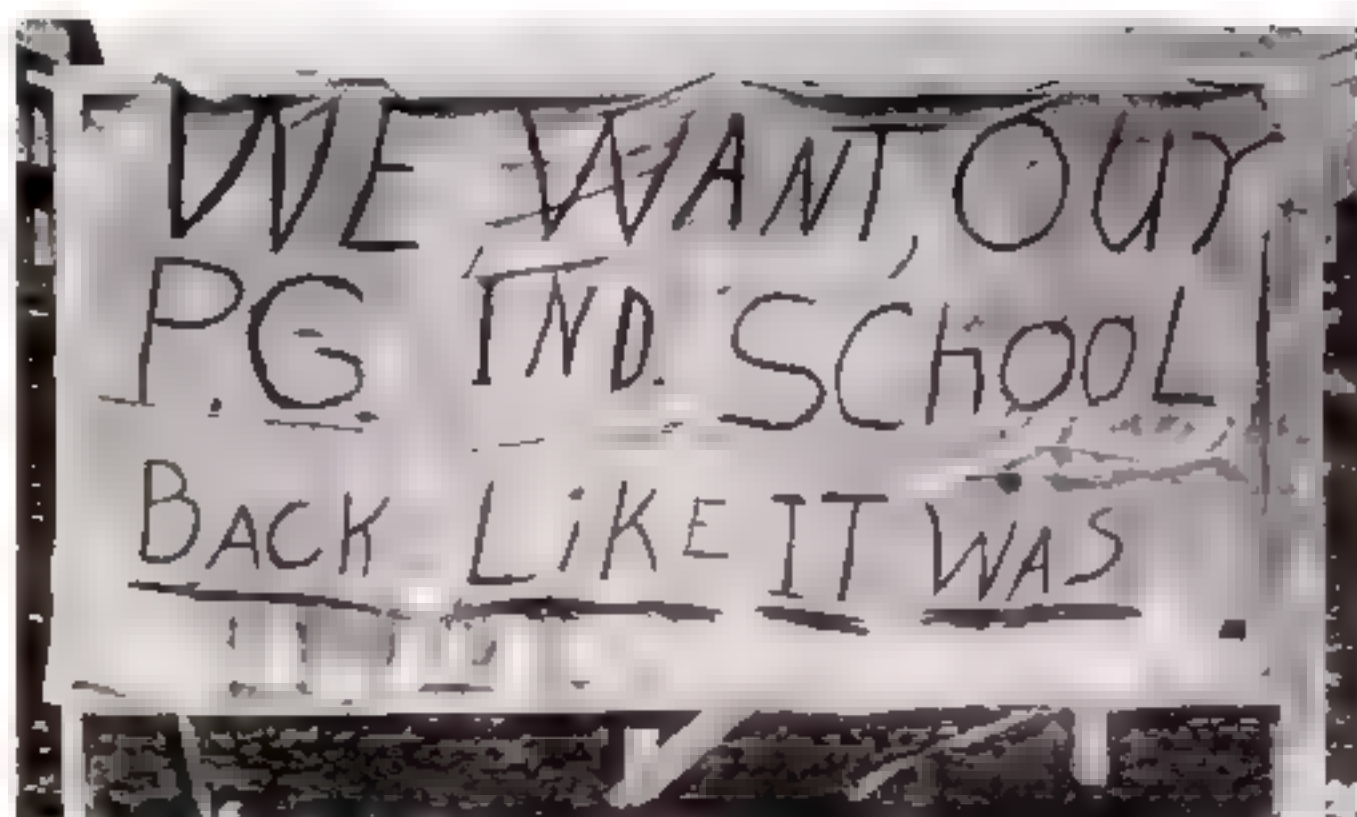 WE WANT, OUr
P.G. IND. SChOOL
BACK LiKE IT WAS